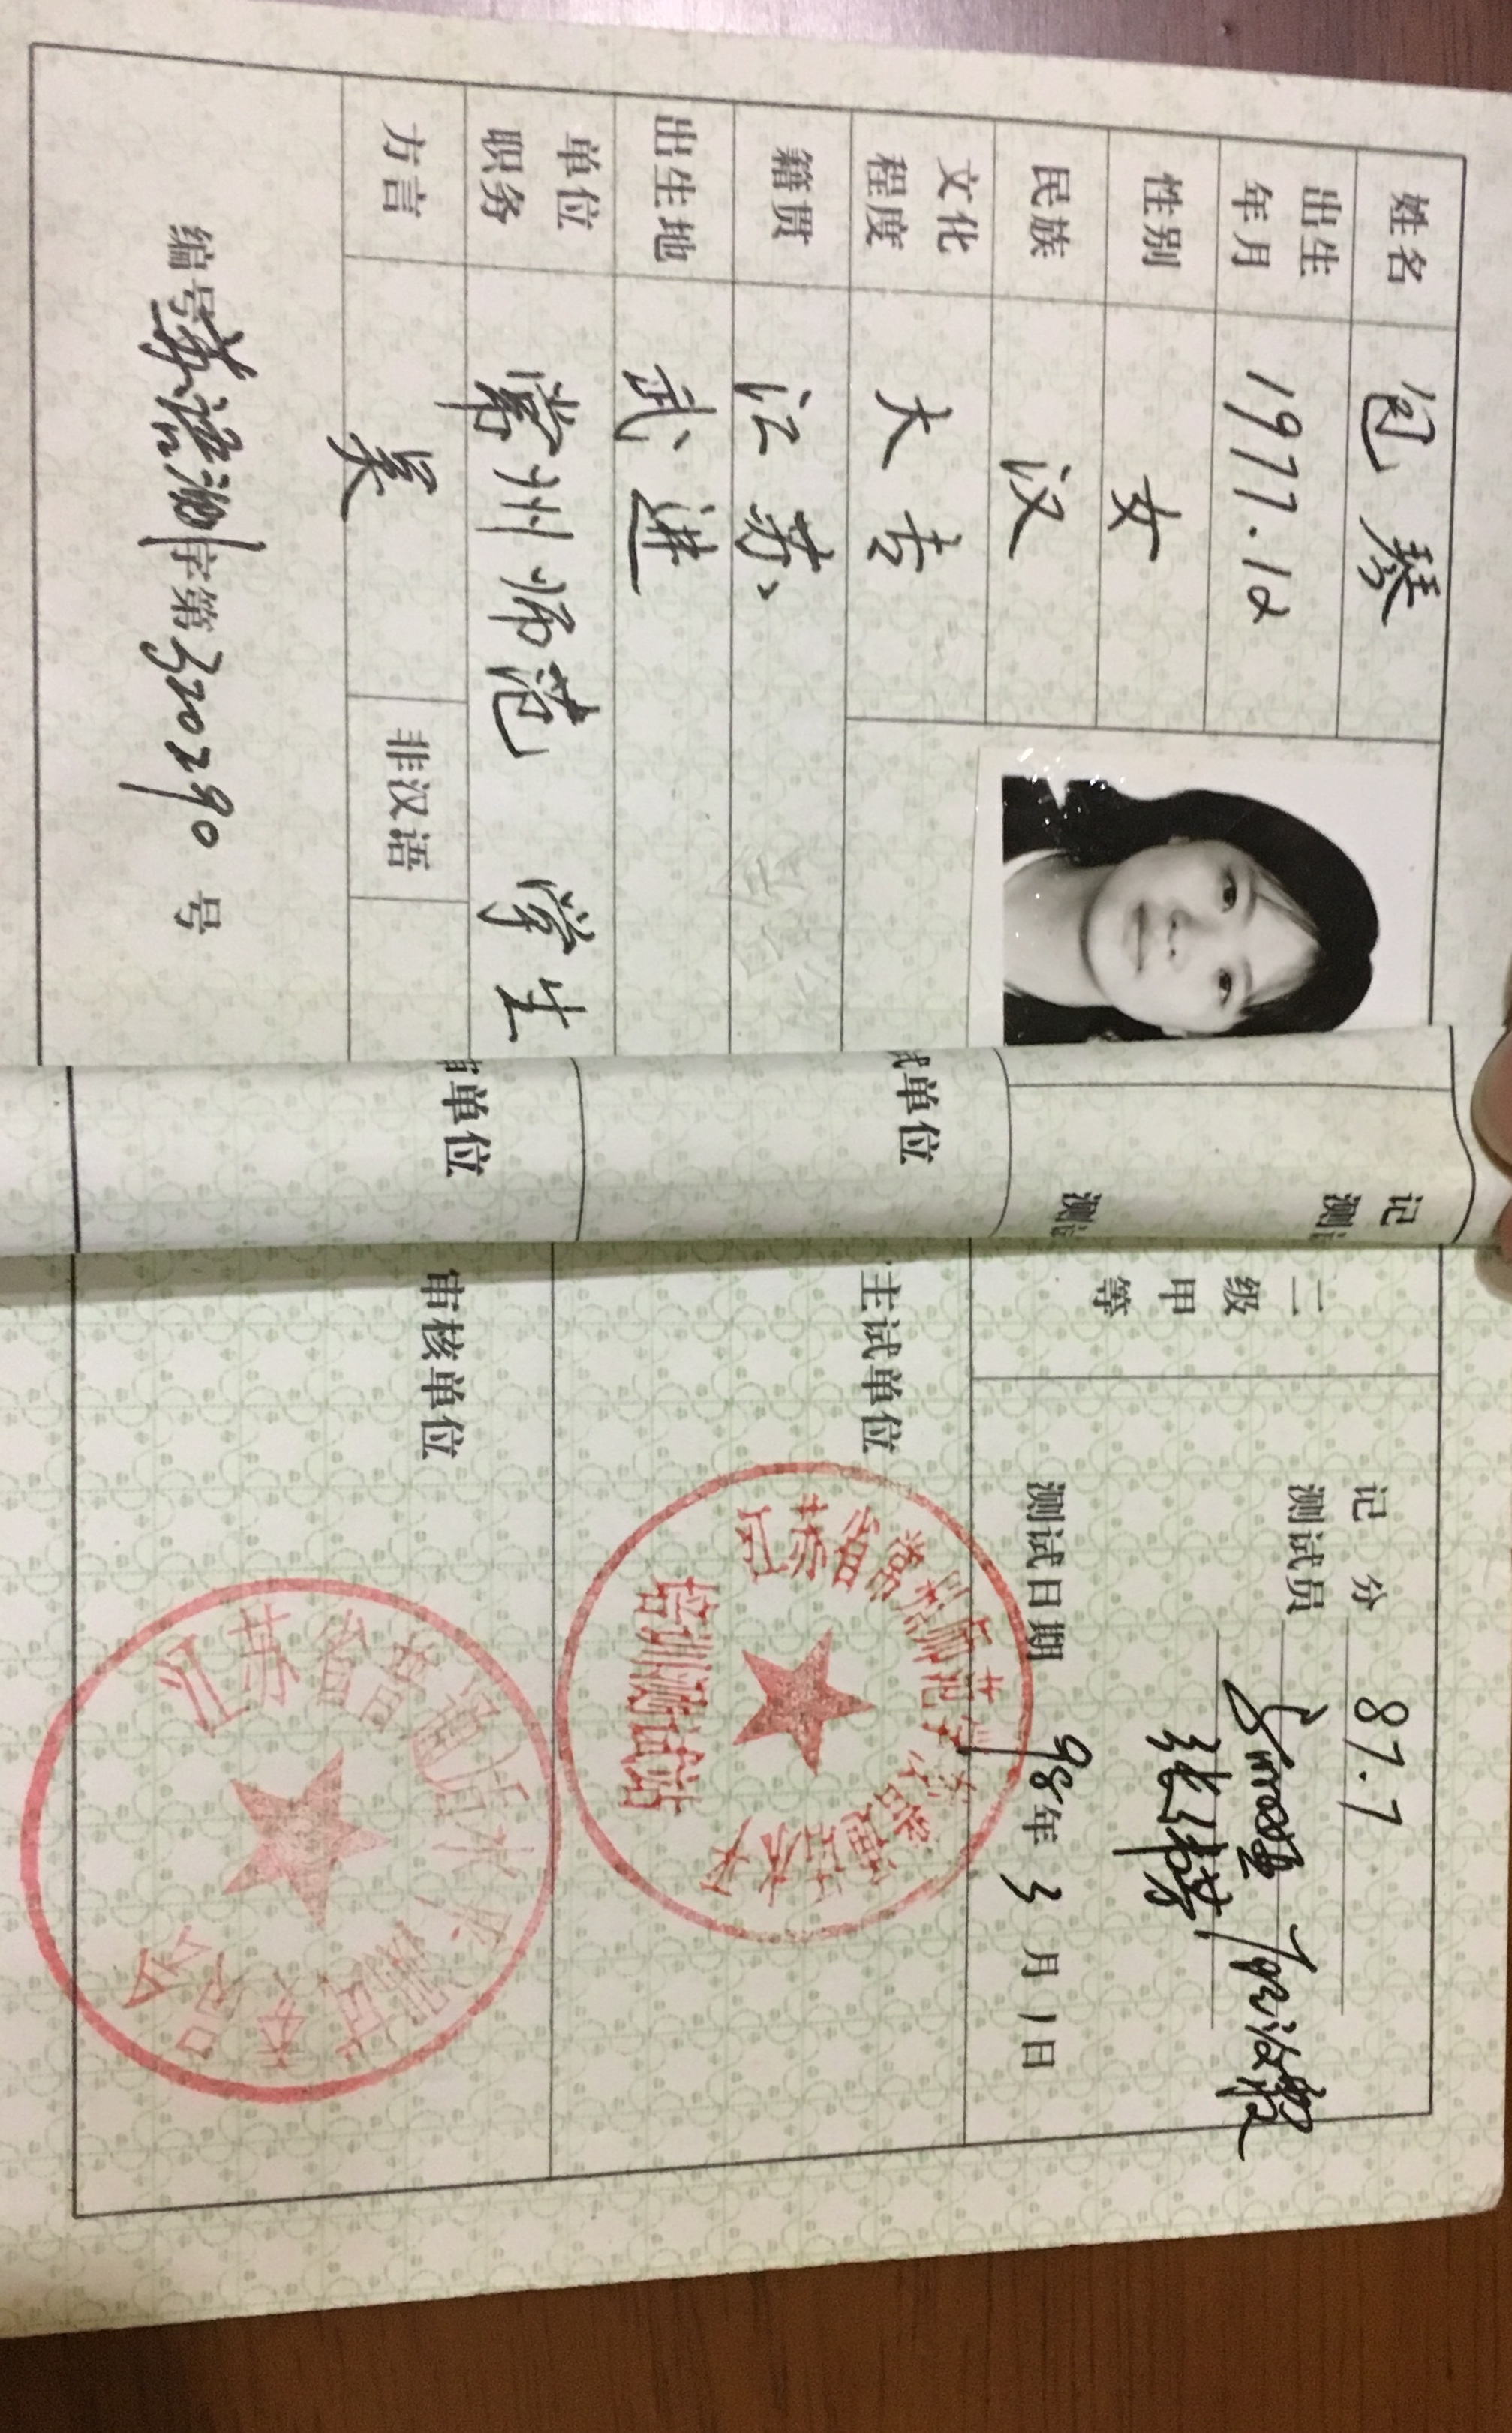 姓名 包琴
出生年月 1977.12
性别 女
民族 汉
文化程度 大专
籍贯 江苏
出生地 武进
单位职务 常州师范 学生
方言 吴
非汉语
编号苏语测字第320290号
记
测
测
试单位
单位
二级甲等
记分 87.7
测试员
测试日期 98年3月1日
主试单位
江苏省常州师范学校普通话
培训测试站
审核单位
江苏省普通话水平测试委员会